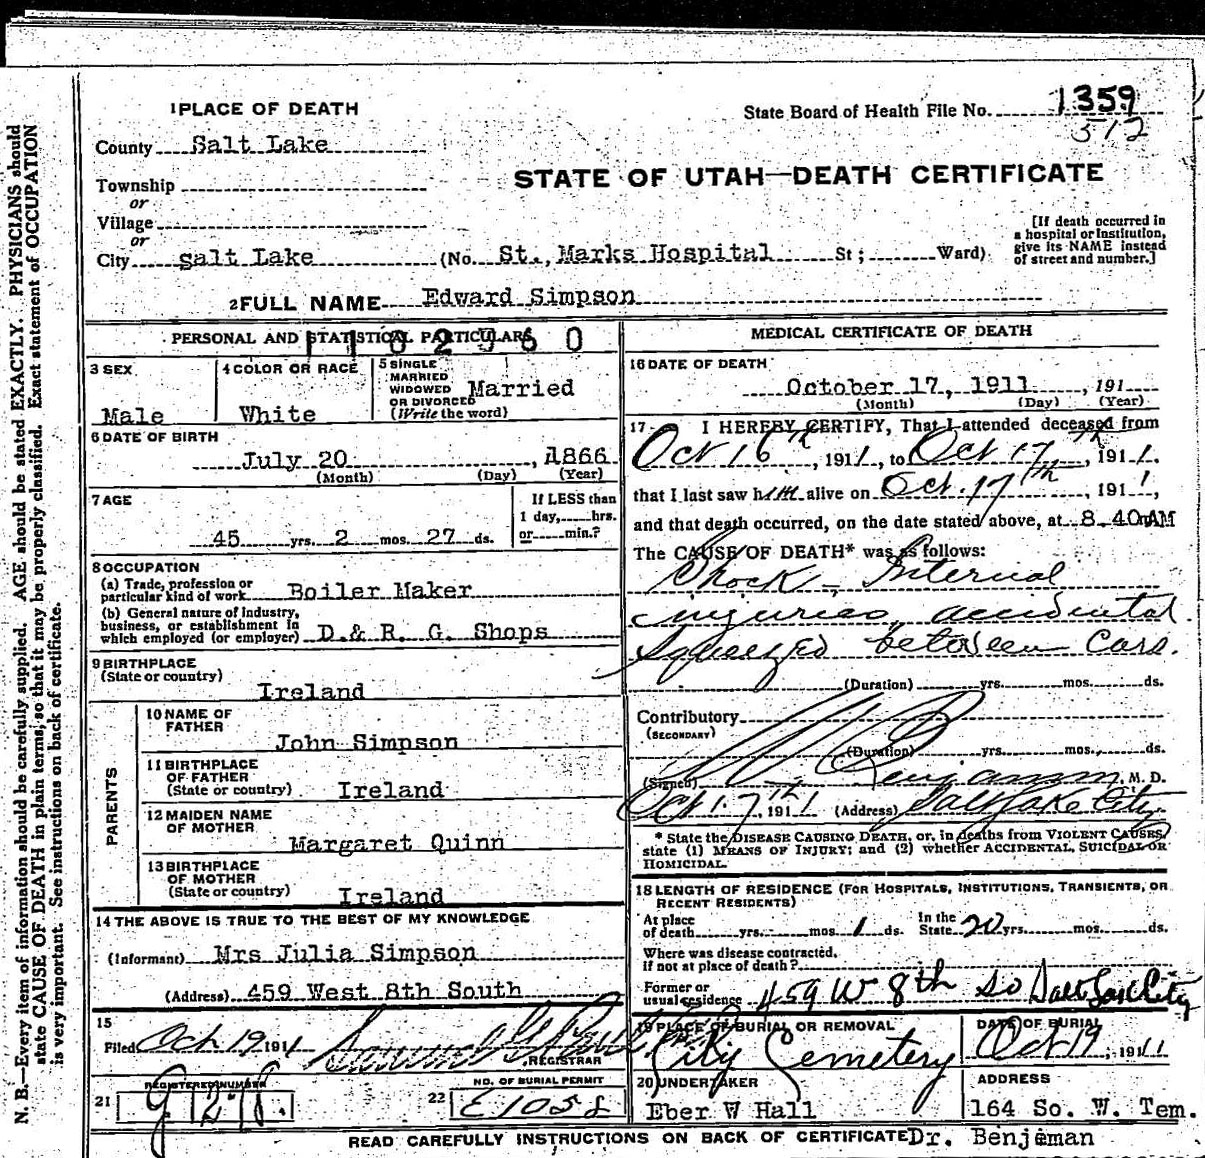 1 PLACE OF DEATH
State Board of Health File No. 1359
512
County Salt Lake
STATE OF UTAH—DEATH CERTIFICATE
Township
or
Village
or
City salt Lake (No. St., Marks Hospital St ; Ward)
[If death occurred in
a hospital or institution,
give its NAME instead
of street and number.]
2 FULL NAME Edward Simpson
PERSONAL AND STATISTICAL PARTICULARS
3 SEX
Male
4 COLOR OR RACE
White
5 SINGLE
MARRIED
WIDOWED
OR DIVORCED
(Write the word)
Married
6 DATE OF BIRTH
July 20, 1866
(Month) (Day) (Year)
7 AGE
45 yrs. 2 mos. 27 ds.
If LESS than
1 day, hrs.
or min.?
8 OCCUPATION
(a) Trade, profession or
particular kind of work Boiler Maker
(b) General nature of industry,
business, or establishment in
which employed (or employer) D.& R. G. Shops
9 BIRTHPLACE
(State or country)
Ireland
PARENTS
10 NAME OF
FATHER
John Simpson
11 BIRTHPLACE
OF FATHER
(State or country) Ireland
12 MAIDEN NAME
OF MOTHER
Margaret Quinn
13 BIRTHPLACE
OF MOTHER
(State or country)
Ireland
14 THE ABOVE IS TRUE TO THE BEST OF MY KNOWLEDGE
(Informant) Mrs Julia Simpson
(Address) 459 West 8th South
15
Filed Oct 19, 1911
REGISTRAR
REGISTERED NUMBER
21
NO. OF BURIAL PERMIT
22 E1058
MEDICAL CERTIFICATE OF DEATH
16 DATE OF DEATH
October 17, 1911, 191
(Month) (Day) (Year)
17 I HEREBY CERTIFY, That I attended deceased from
Oct 16th, 1911, to Oct 17th, 1911,
that I last saw him alive on Oct. 17th, 1911,
and that death occurred, on the date stated above, at 8-40 m AM
The CAUSE OF DEATH* was as follows:
Shock - Internal
injuries, accidental
squeezed between Cars.
(Duration) yrs. mos. ds.
Contributory
(SECONDARY)
(Duration) yrs. mos. ds.
(Signed) Benjamin, M. D.
Oct 17th, 1911 (Address) Salt Lake City
* State the DISEASE CAUSING DEATH, or, in deaths from VIOLENT CAUSES,
state (1) MEANS OF INJURY; and (2) whether ACCIDENTAL, SUICIDAL OR
HOMICIDAL.
18 LENGTH OF RESIDENCE (FOR HOSPITALS, INSTITUTIONS, TRANSIENTS, OR
RECENT RESIDENTS)
At place
of death yrs. mos. 1 ds.
In the
State 20 yrs. mos. ds.
Where was disease contracted,
if not at place of death?
Former or
usual residence 459 W 8th So Salt Lake City
19 PLACE OF BURIAL OR REMOVAL
City Cemetery
DATE OF BURIAL
Oct 19, 1911
20 UNDERTAKER
Eber W Hall
ADDRESS
164 So. W. Tem.
READ CAREFULLY INSTRUCTIONS ON BACK OF CERTIFICATE Dr. Benjeman
N. B.—Every item of information should be carefully supplied. AGE should be stated EXACTLY. PHYSICIANS should
state CAUSE OF DEATH in plain terms, so that it may be properly classified. Exact statement of OCCUPATION
is very important. See instructions on back of certificate.